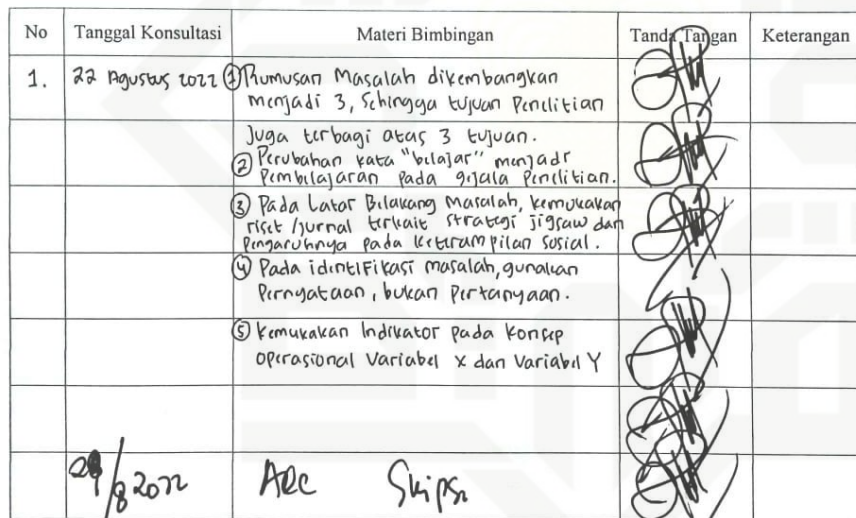 No Tanggal Konsultasi Materi Bimbingan Tanda Tangan Keterangan
1. 22 Agustus 2022 ① Rumusan Masalah dikembangkan
menjadi 3, Sehingga tujuan Penelitian
Juga terbagi atas 3 tujuan.
② Perubahan kata "belajar" menjadi
Pembelajaran pada gejala Penelitian.
③ Pada Latar Belakang Masalah, kemukakan
riset /jurnal terkait strategi jigsaw dan
Pengaruhnya pada Keterampilan Sosial.
④ Pada identifikasi masalah, gunakan
Pernyataan, bukan Pertanyaan.
⑤ Kemukakan Indikator pada Konsep
Operasional Variabel X dan Variabel Y
/8 2022 Acc Skipsi